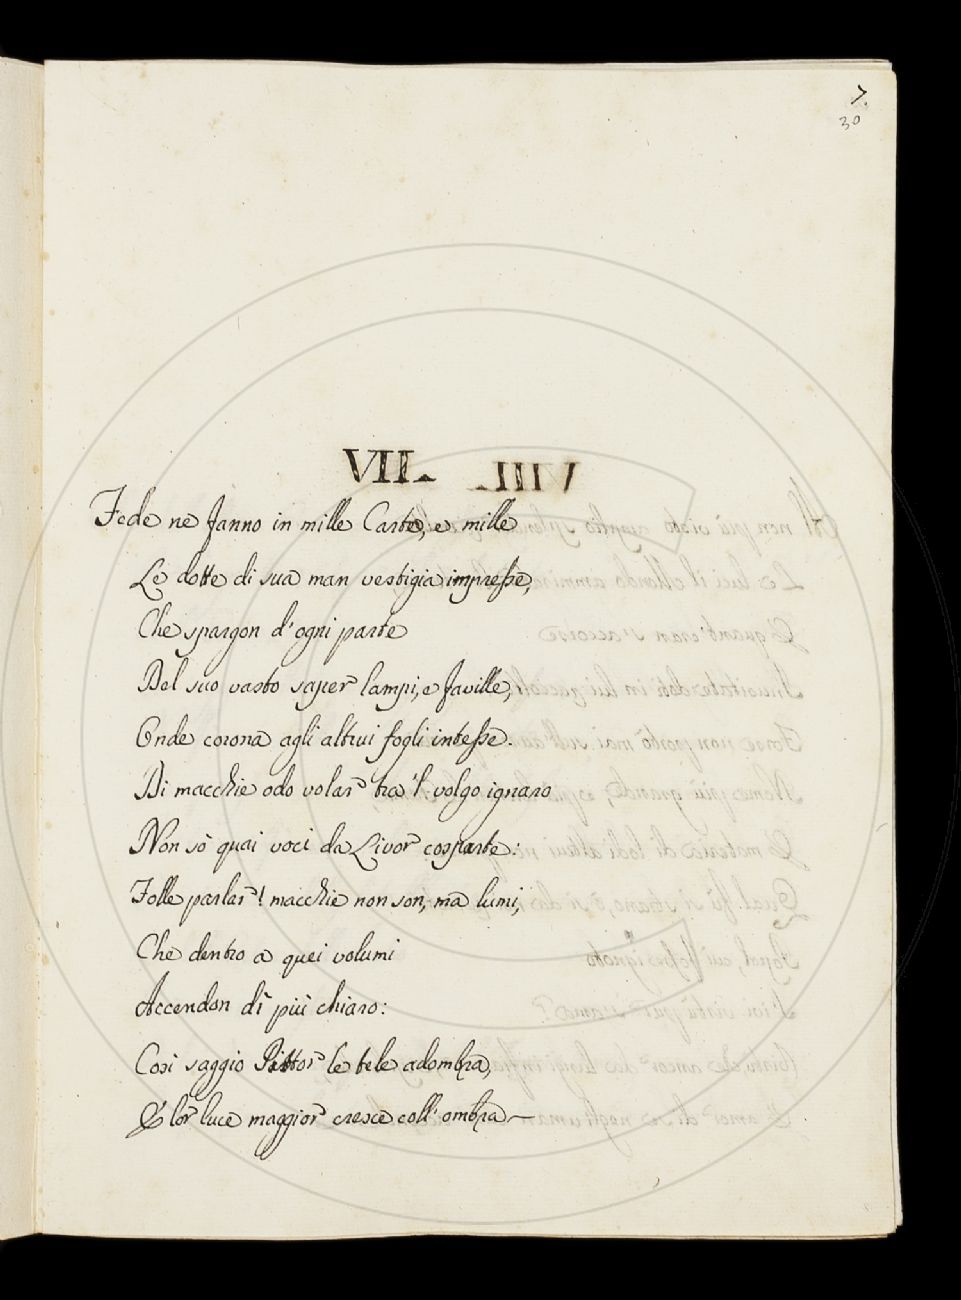 7.
30
VII.
Fede ne fanno in mille Carte, e mille
Le dotte di sua man vestigia impresse,
Che spargon d'ogni parte
Del suo vasto saper lampi, e faville,
Onde corona agli altrui fogli intesse.
Di macchie odo volar tra 'l volgo ignaro
Non sò quai voci da Livor cosparte:
Folle parlar! macchie non son, ma lumi,
Che dentro a quei volumi
Accendon dì più chiaro:
Così saggio Pittor le tele adombra,
E lor luce maggior cresce coll' ombra